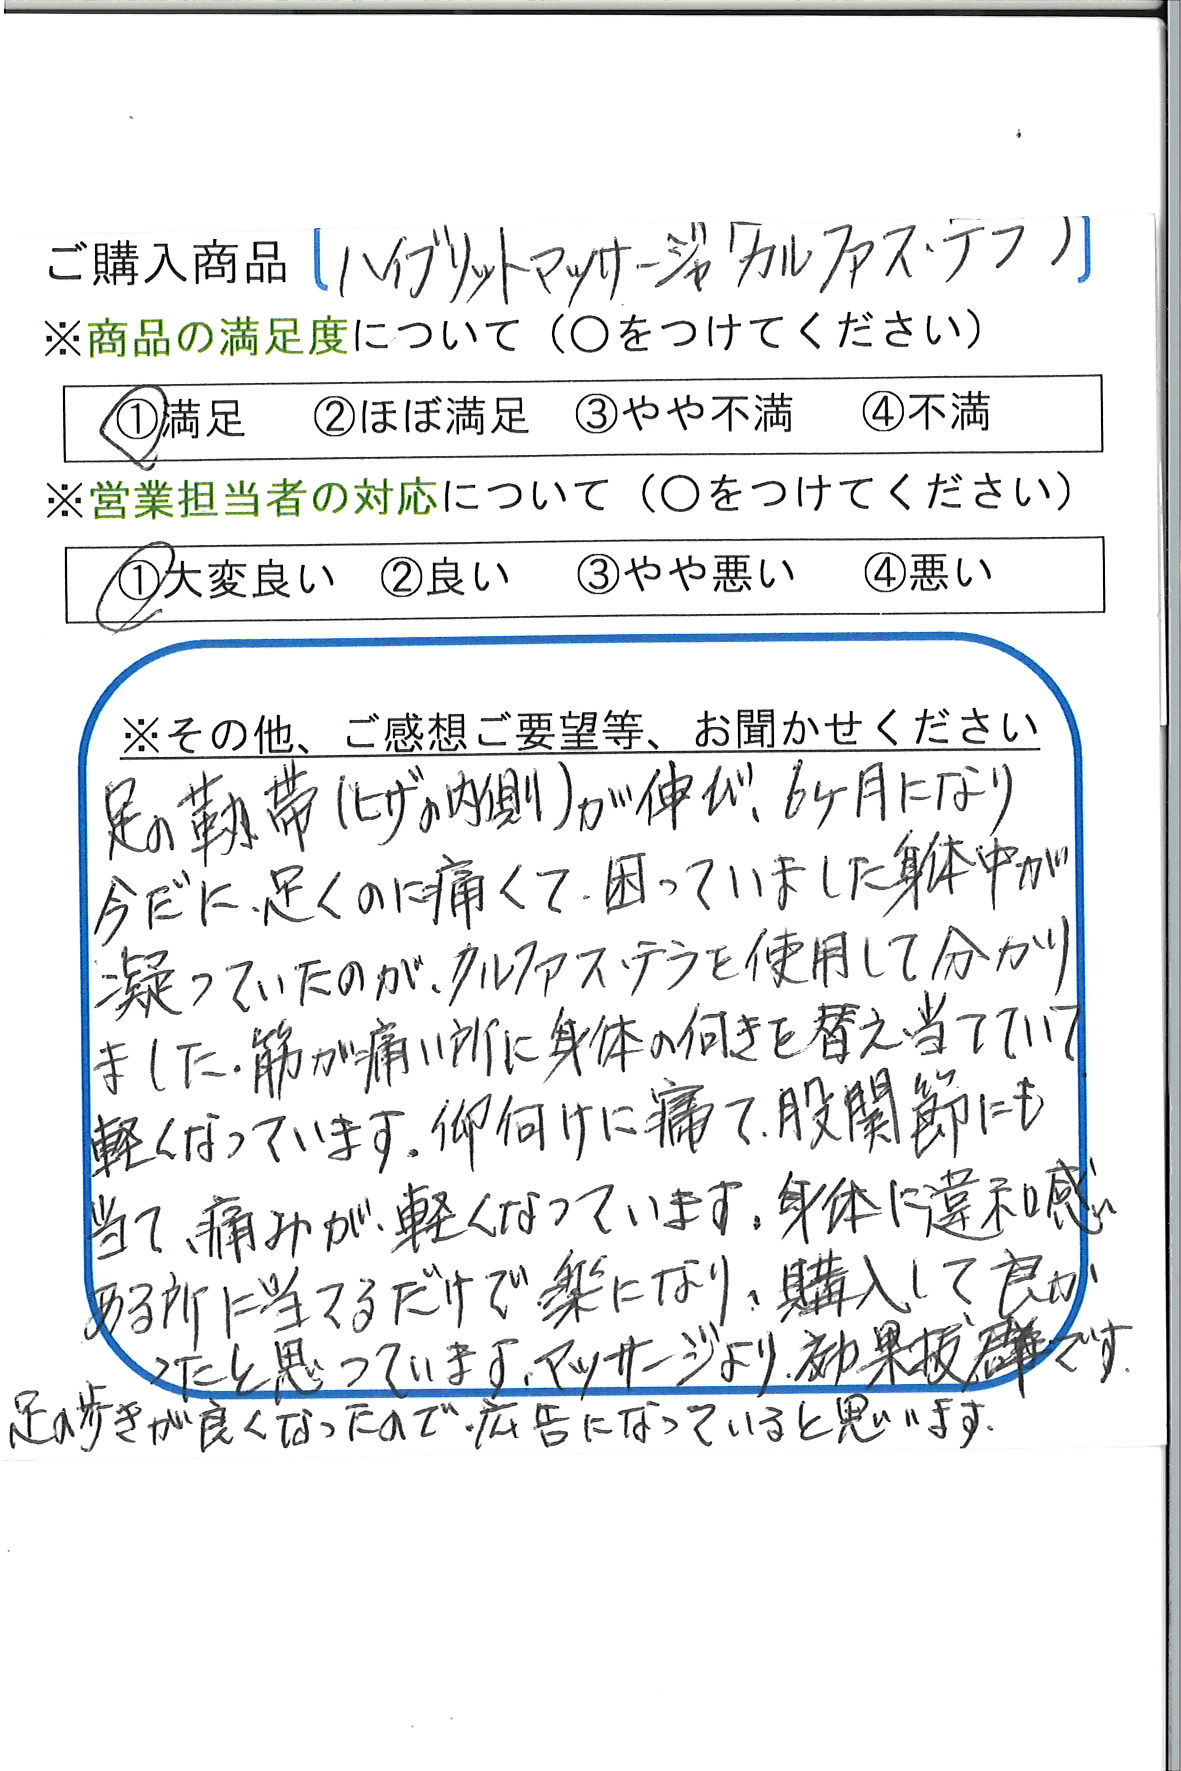 ご購入商品 [ハイブリットマッサージャ「カルファス・テラ」]
※商品の満足度について（〇をつけてください）
①満足 ②ほぼ満足 ③やや不満 ④不満
※営業担当者の対応について（〇をつけてください）
①大変良い ②良い ③やや悪い ④悪い
※その他、ご感想ご要望等、お聞かせください
足の靭帯(ヒザの内側)が伸び、6ヶ月になり
今だに、足くのに痛くて、困っていました身体中が
凝っていたのが、カルファス・テラを使用して分かり
ました。筋が痛い所に身体の向きを替え、当てていて
軽くなっています。仰向けに痛て、股関節にも
当て、痛みが、軽くなっています。身体に違和感が
ある所に当てるだけで楽になり、購入して良か
ったと思っています。マッサージより、効果抜群です。
足の歩きが良くなったので、広告になっていると思います。